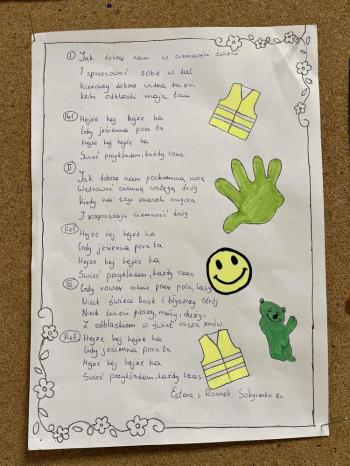 I Jak dobrze nam w ciemności świecić
I spacerować sobie w dal
Kierowcy dobrze widzą dzieci
które odblaski mają tam.
Ref Hejże hej hejże ha
Gdy jesienna pora ta
Hejże hej hejże ha
Świeć przykładem, każdy czas
II Jak dobrze nam pochmurną nocą
Wędrować ciemną wstęgą dróg
Kiedy na szyi znaczki migocą
I rozpraszają ciemność dróg
Ref Hejże hej hejże ha
Gdy jesienna pora ta
Hejże hej hejże ha
Świeć przykładem, każdy czas
III Gdy rower mknie przez pola, lasy
Niech świeci kask i błyszczy strój
Niech świeci pieszy, mały, duży,
Z odblaskiem w świat rusza znów
Ref Hejże hej hejże ha
Gdy jesienna pora ta
Hejże hej hejże ha
Świeć przykładem, każdy czas.
Estera i Romek